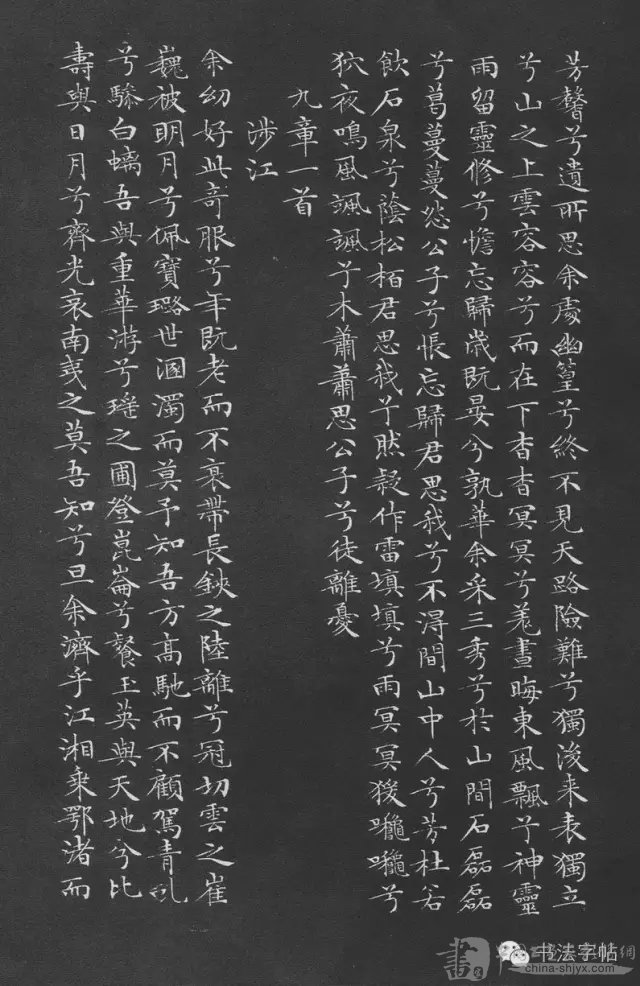 芳馨兮遺所思余處幽篁兮終不見天路險難兮獨後来表獨立
兮山之上雲容容兮而在下杳杳冥冥兮羌晝晦東風飄兮神靈
雨留靈修兮憺忘歸歲既晏兮孰華余采三秀兮於山間石磊磊
兮葛蔓蔓怨公子兮悵忘歸君思我兮不得間山中人兮芳杜若
飲石泉兮蔭松栢君思我兮然疑作雷填填兮雨冥冥猨嚨嚨兮
狖夜鳴風颯颯兮木蕭蕭思公子兮徒離憂
九章一首
涉江
余幼好此奇服兮年既老而不衰帶長鋏之陸離兮冠切雲之崔
巍被明月兮佩寶璐世溷濁而莫予知吾方高馳而不顧駕青虬
兮驂白螭吾與重華游兮瑤之圃登崑崙兮餐玉英與天地兮比
壽與日月兮齊光哀南夷之莫吾知兮旦余濟乎江湘乗鄂渚而
书法字帖
china-shjyx.com